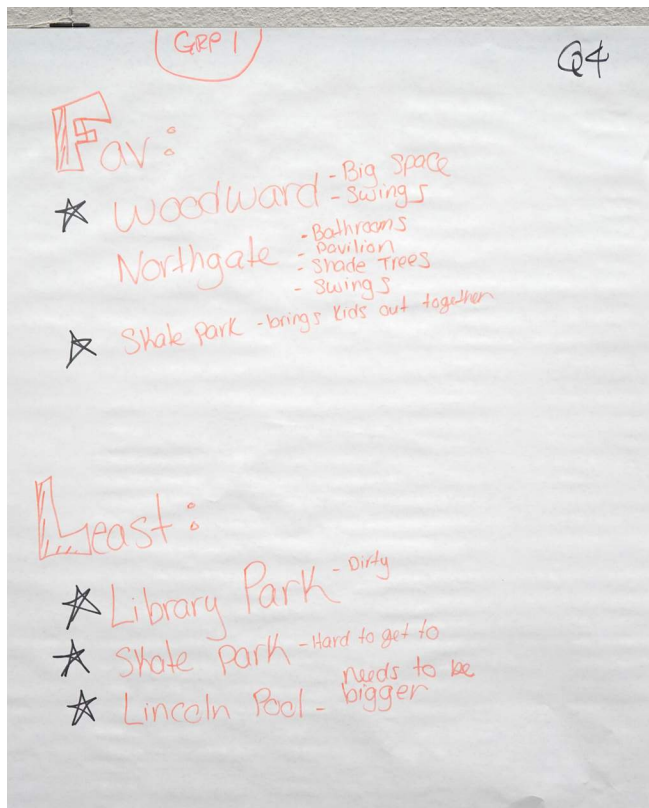 GRP 1
Q4
Fav:
Woodward - Big Space
- Swings
Northgate - Bathrooms
- Pavilion
- Shade Trees
- Swings
Skate Park - brings kids out together
Least:
Library Park - Dirty
Skate Park - Hard to get to
Lincoln Pool - needs to be
bigger